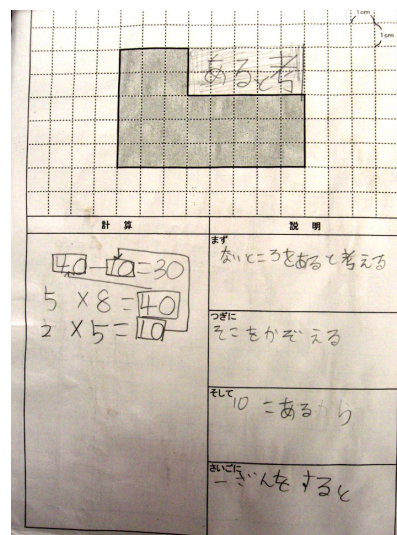 1cm
1cm
あると考
計算
40-10=30
5×8=40
2×5=10
説明
まず
ないところをあると考える
つぎに
そこをかぞえる
そして
10こあるから
さいごに
ーざんをすると